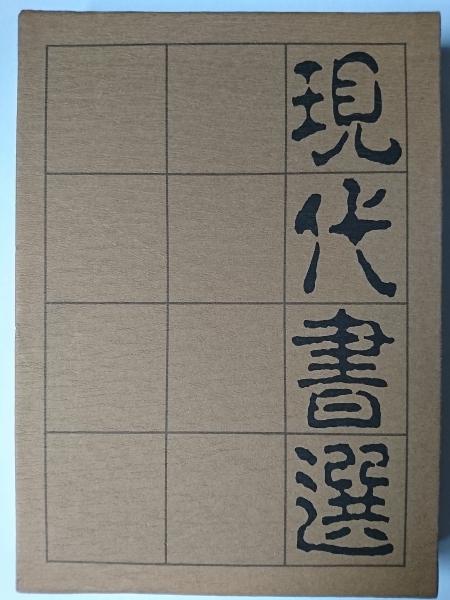 現代書選